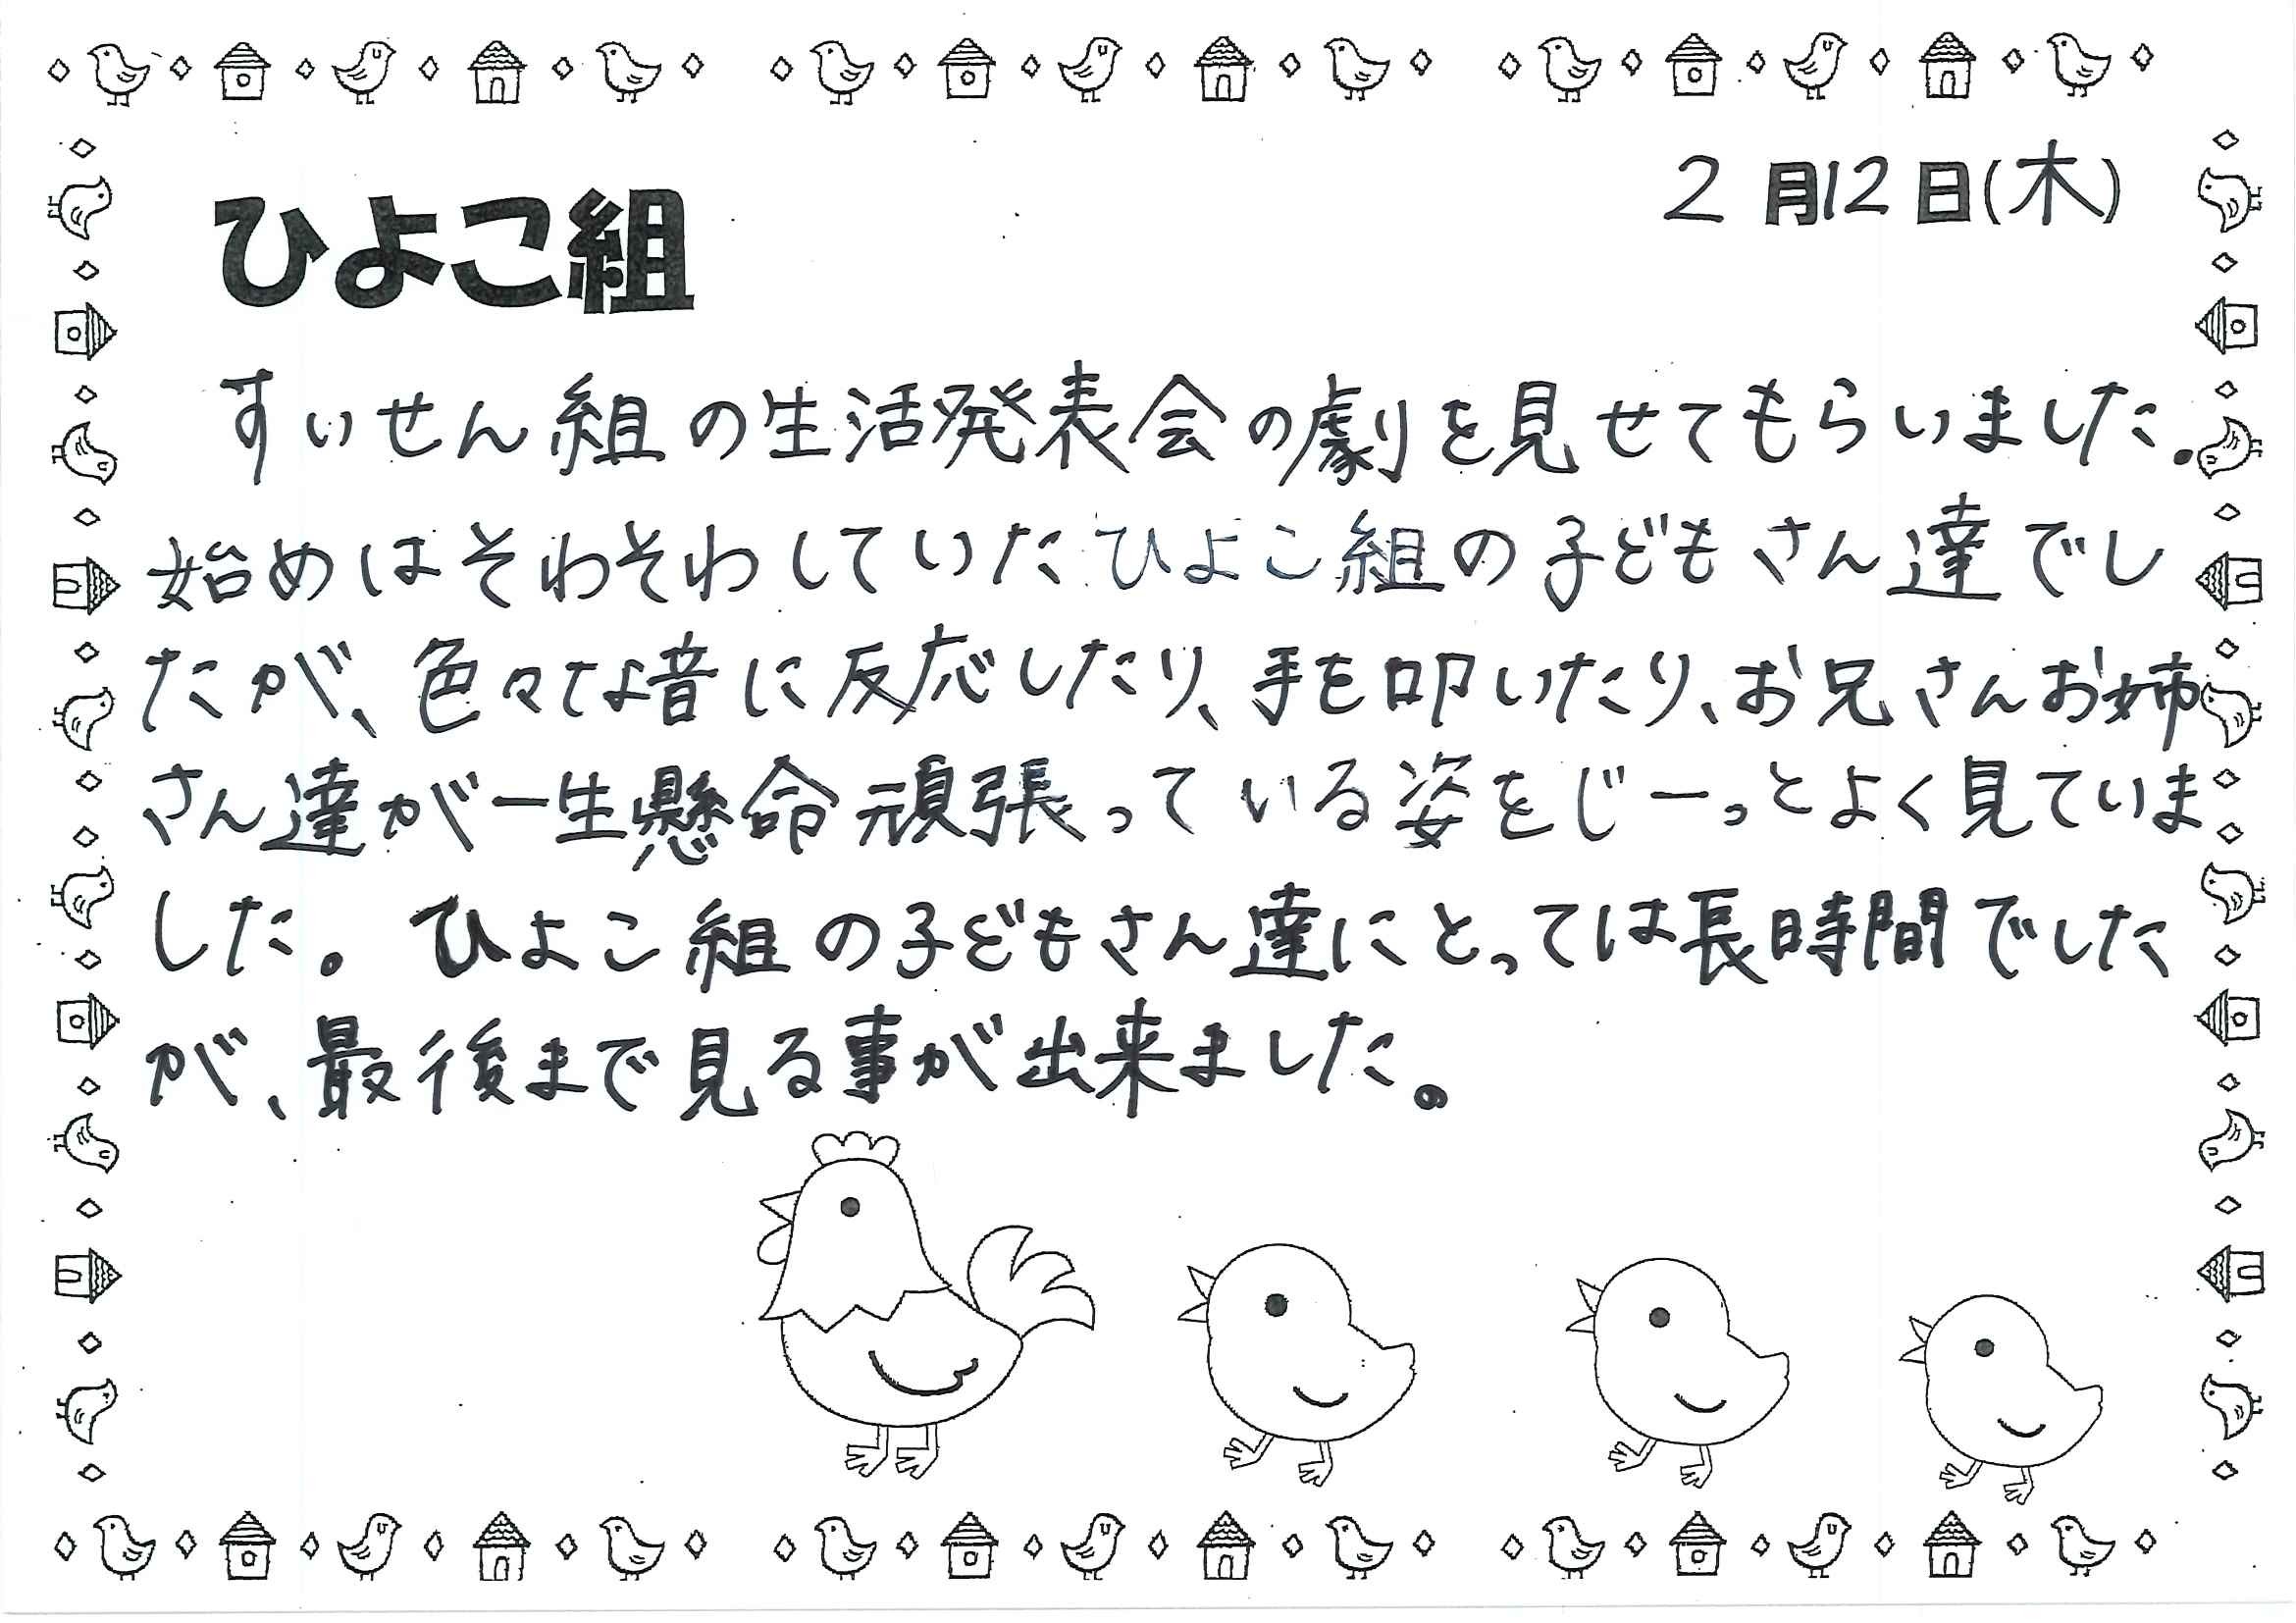 2月12日(木)
ひよこ組
すいせん組の生活発表会の劇を見せてもらいました。
始めはそわそわしていたひよこ組の子どもさん達でし
たが、色々な音に反応したり、手を叩いたり、お兄さんお姉
さん達が一生懸命頑張っている姿をじーっとよく見ていま
した。ひよこ組の子どもさん達にとっては長時間でした
が、最後まで見る事が出来ました。